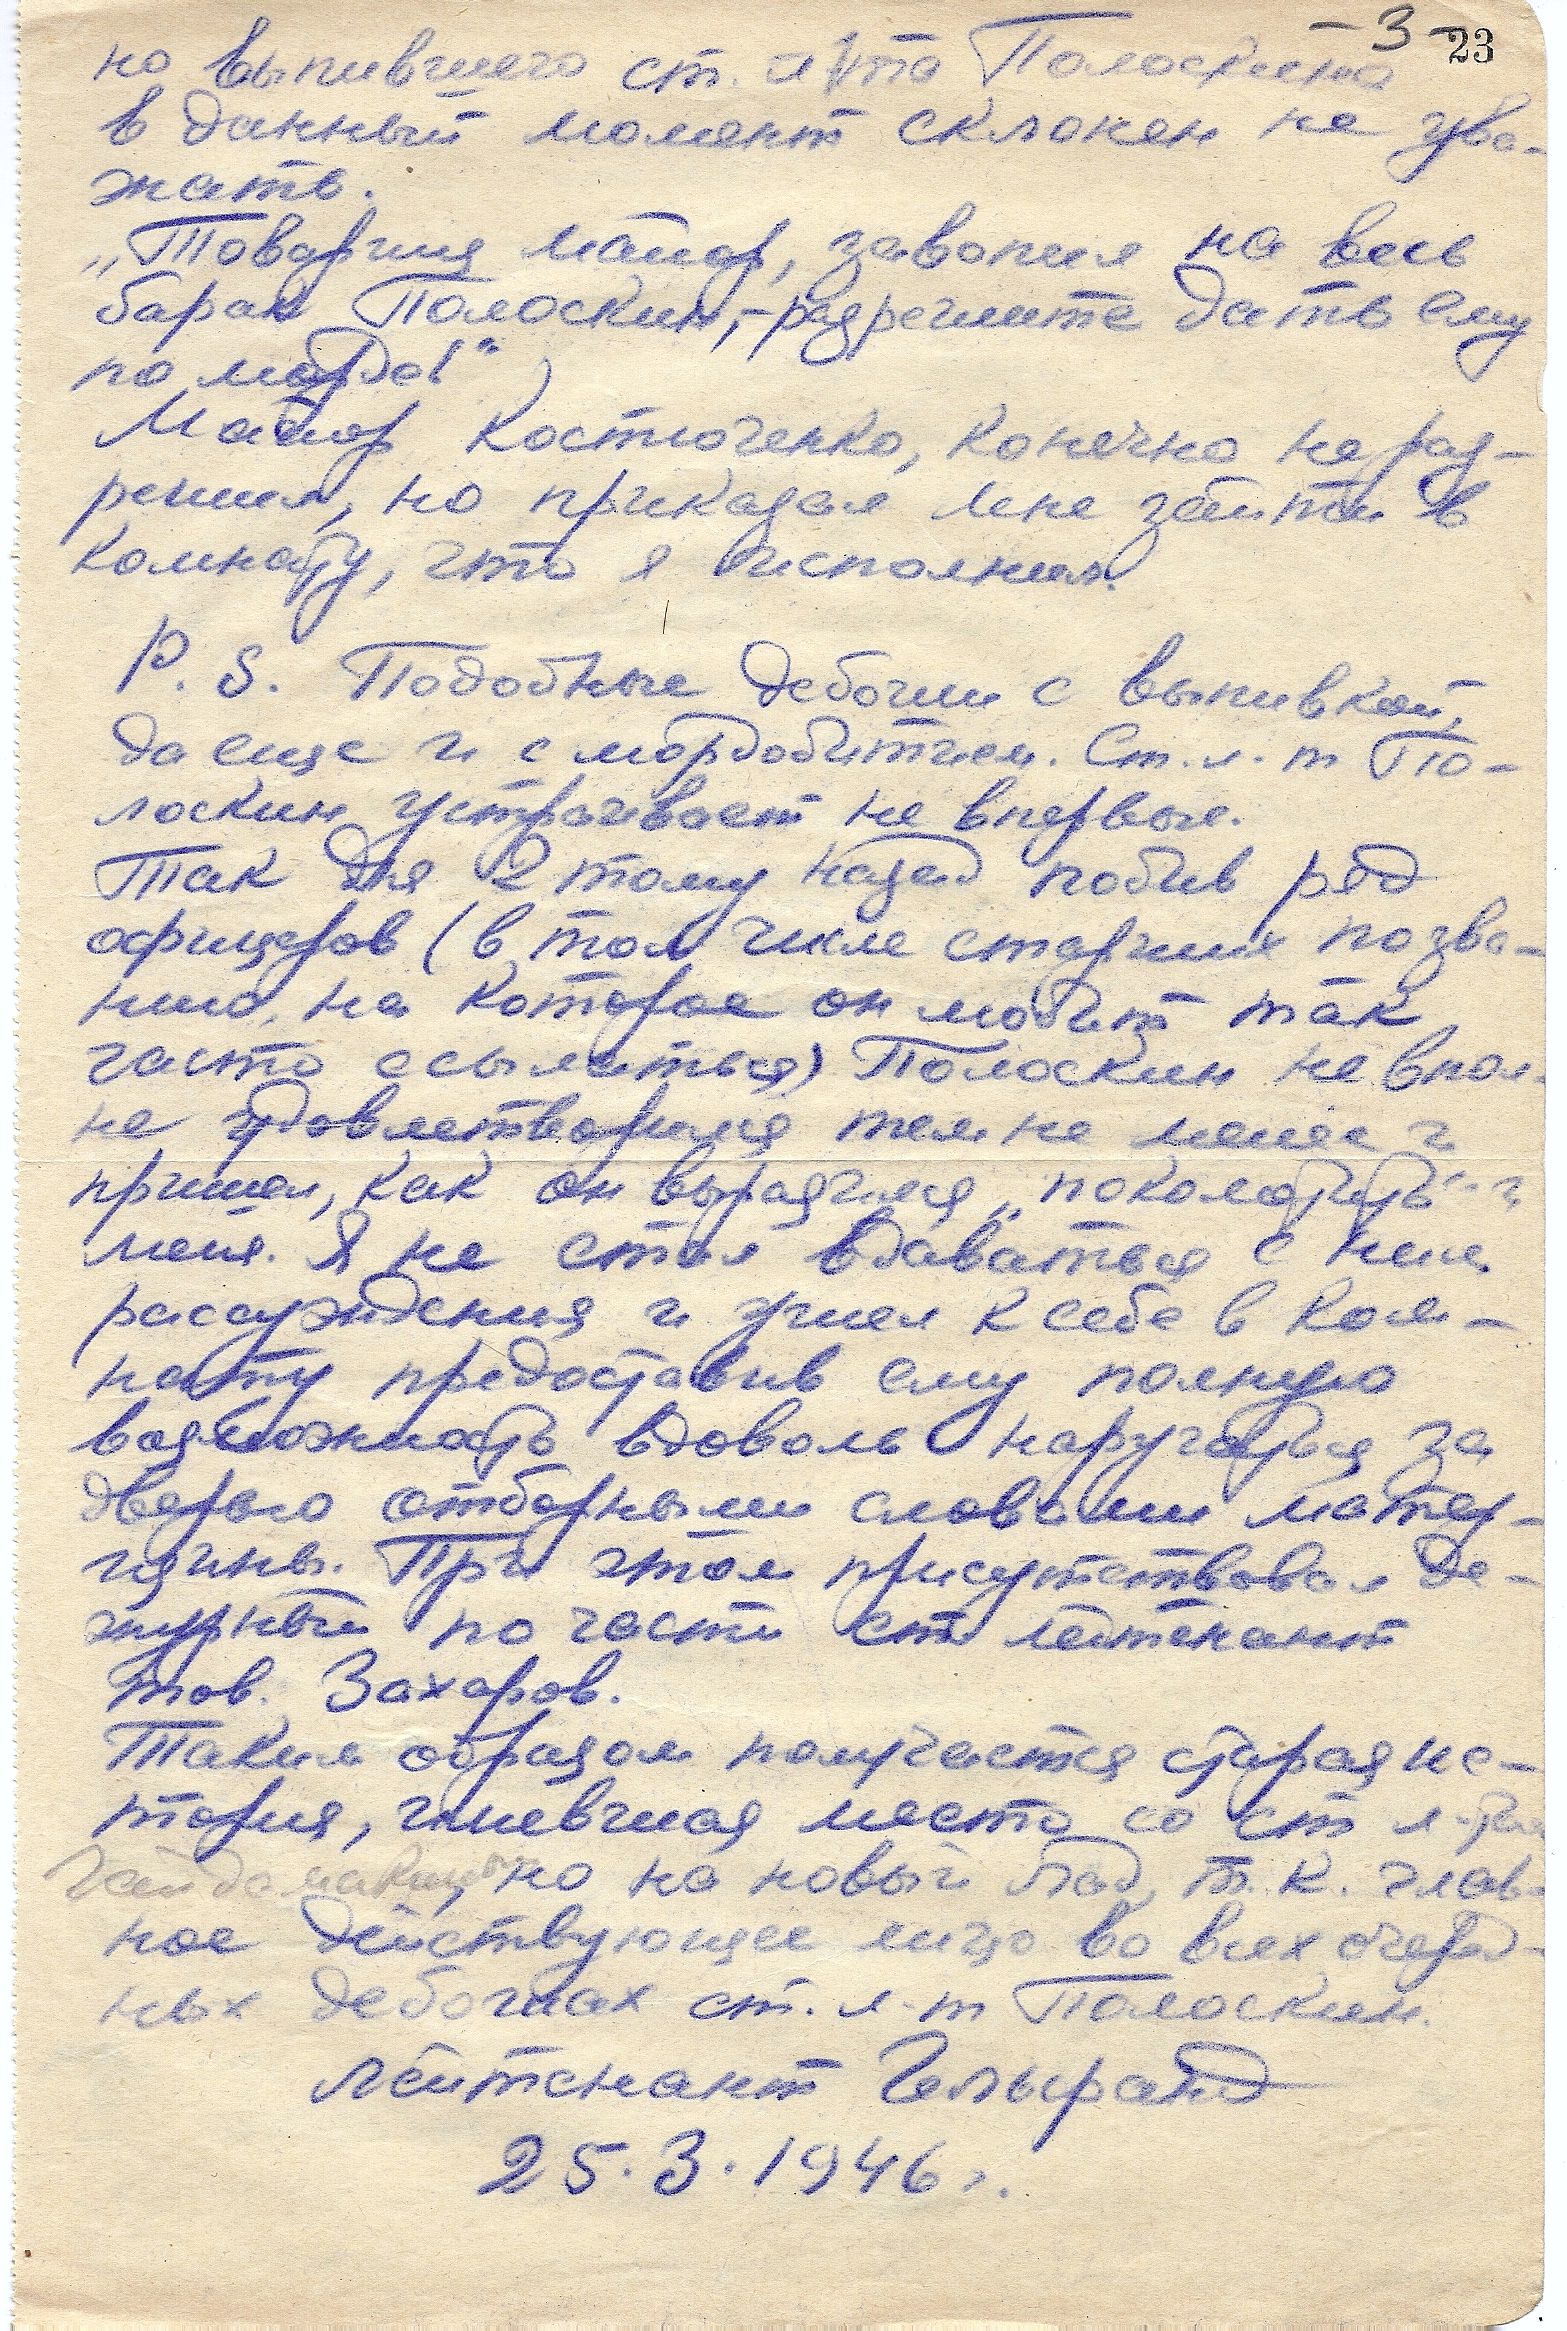 - 3 -
23
но выпившего ст. л-та Полоскина
в данный момент склонен не ува-
жать.
„Товарищ майор, завопил на весь
барак Полоскин, - разрешите дать ему
по морде!"
Майор Костюченко, конечно не раз-
решил, но приказал мне зайти в
комнату, что я и исполнил.
P. S. Подобные дебоши с выпивкой,
да еще и с мордобитием. Ст. л-т По-
лоскин устраивает не впервые.
Так дня 2 тому назад побив ряд
офицеров (в том числе старших по зва-
нию, на которое он любит так
часто ссылаться) Полоскин не впол-
не удовлетворился тем не менее и
пришел, как он выразился „поколотить" и
меня. Я не стал вдаваться с ним
рассуждения и ушел к себе в ком-
нату предоставив ему полную
возможность вдоволь наругаться за
дверью отборными словами матер-
щины. При этом присутствовал де-
журный по части ст. лейтенант
тов. Захаров.
Таким образом получается старая ис-
тория, имевшая место со ст л-том
но на новый лад, т. к. глав-
ное действующее лицо во всех очеред-
ных дебошах ст. л-т Полоскин.
Лейтенант
25. 3. 1946 г.